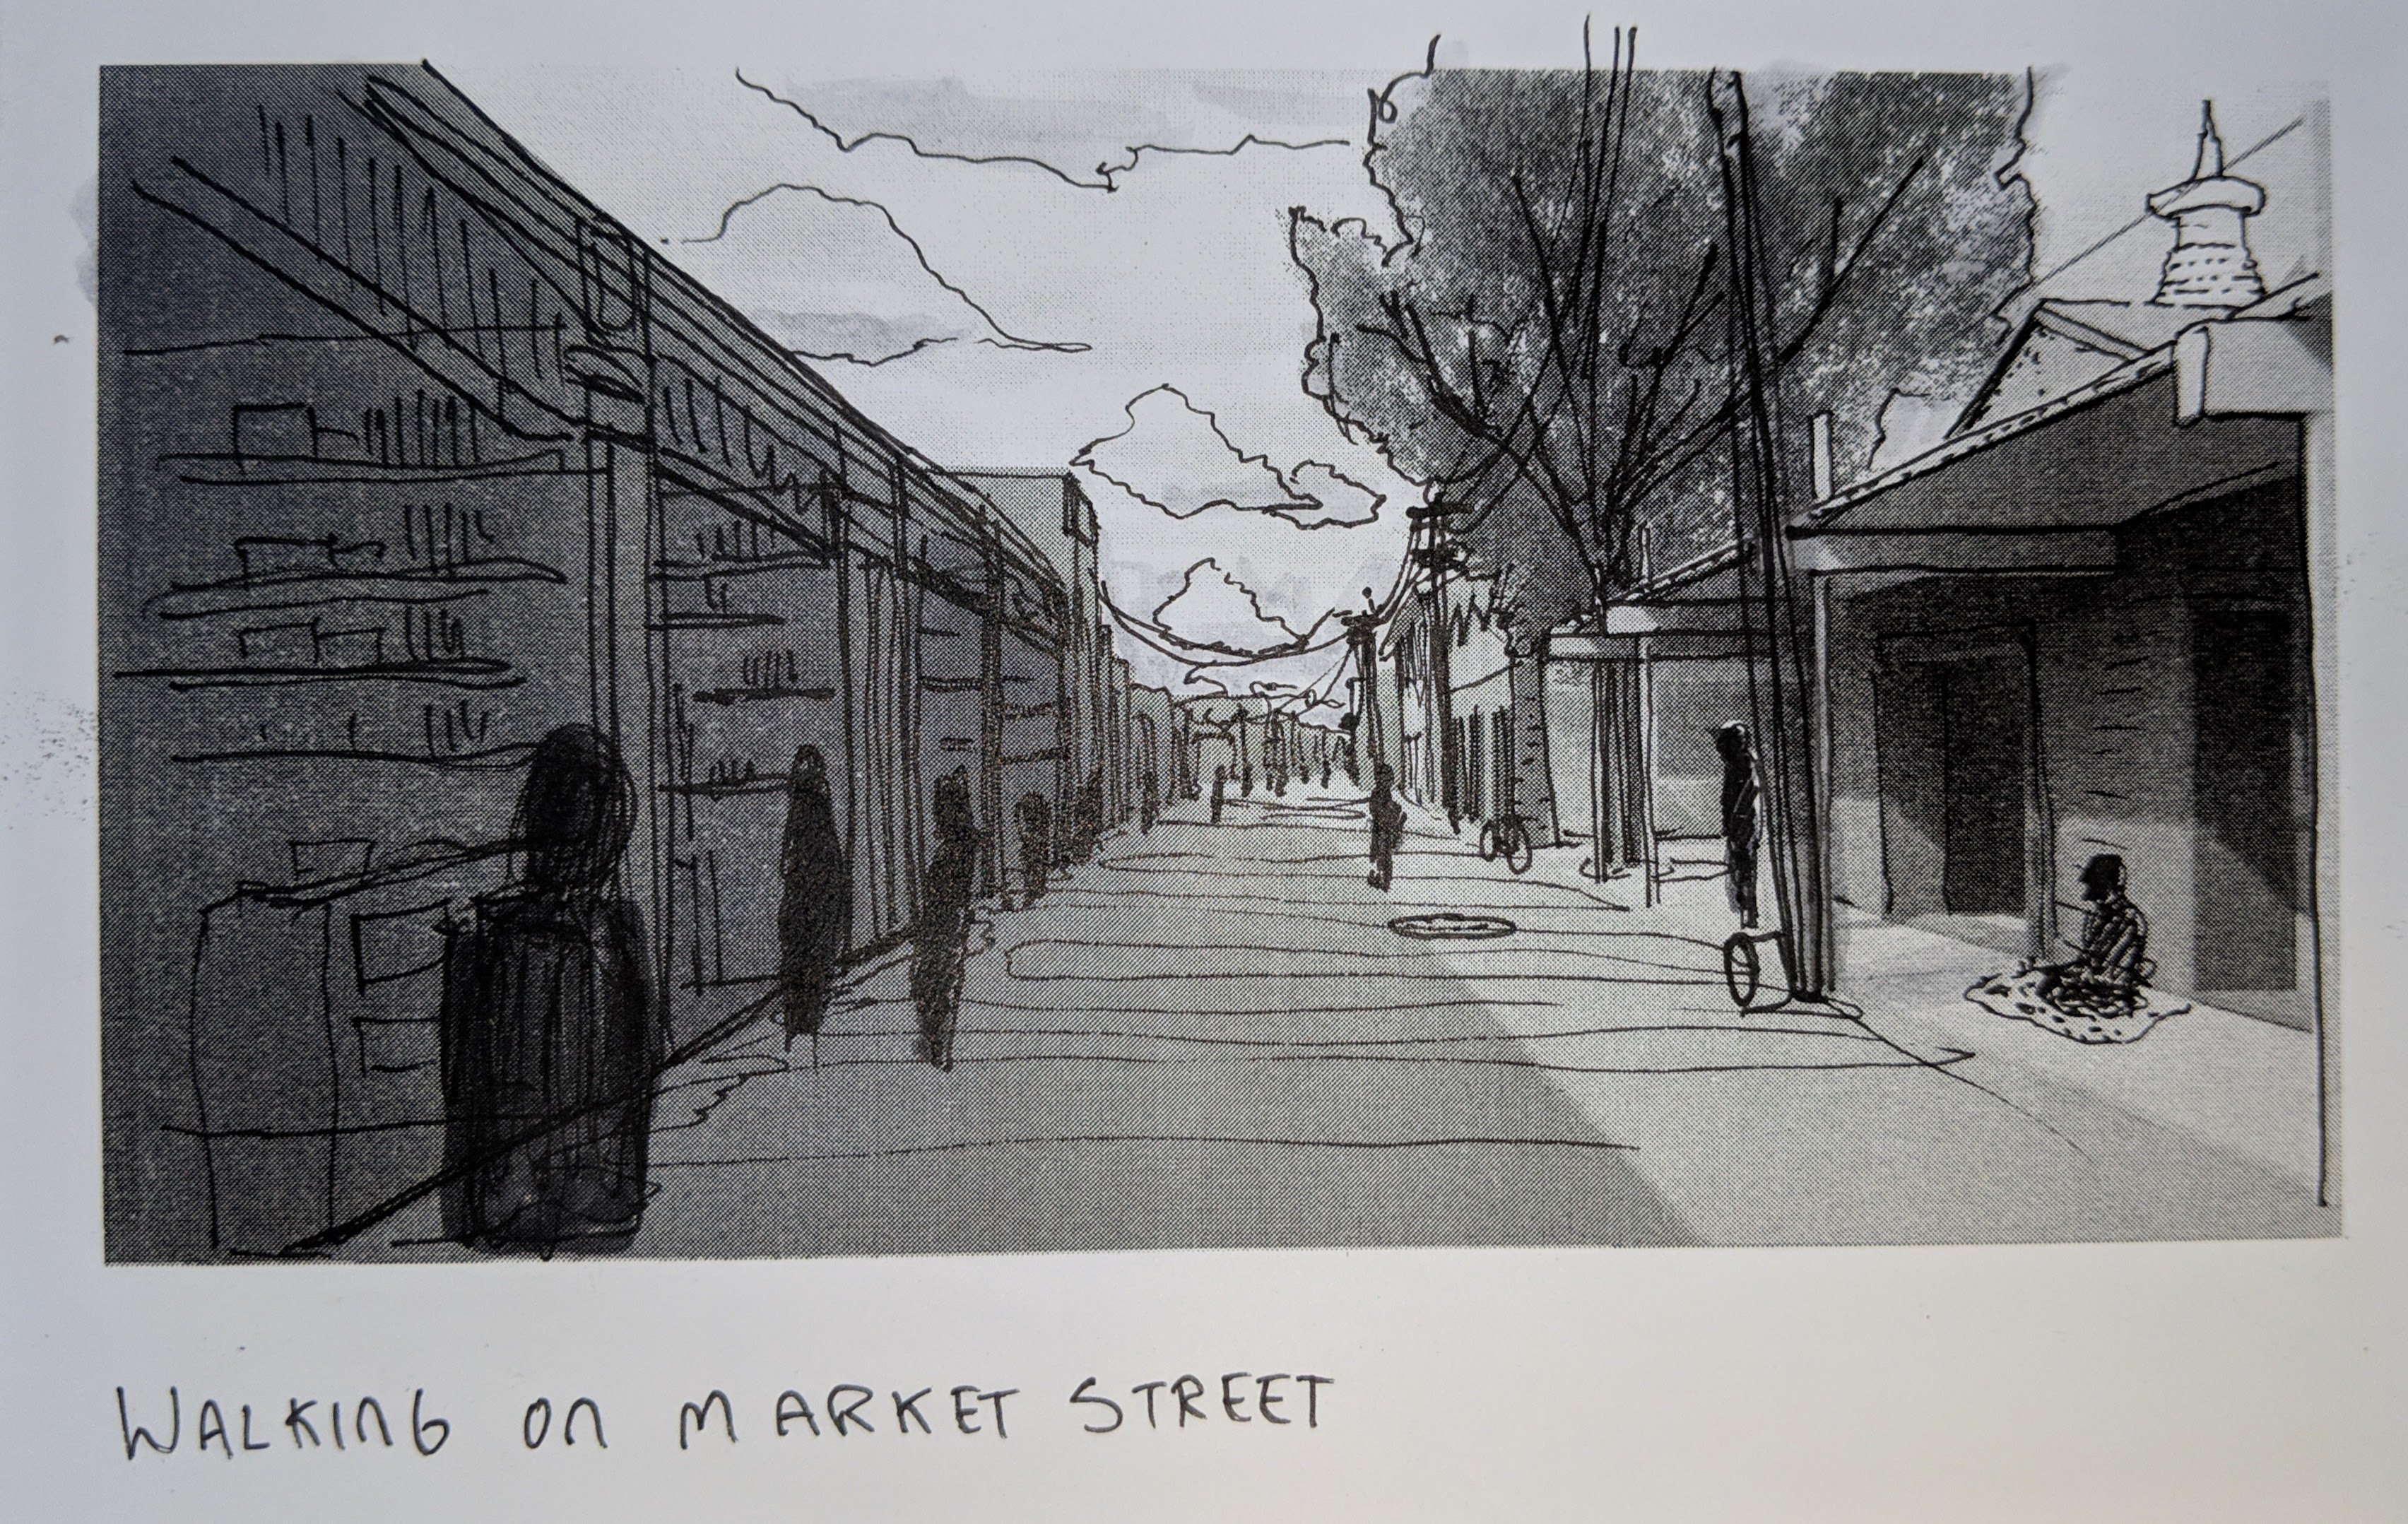 WALKING ON MARKET STREET